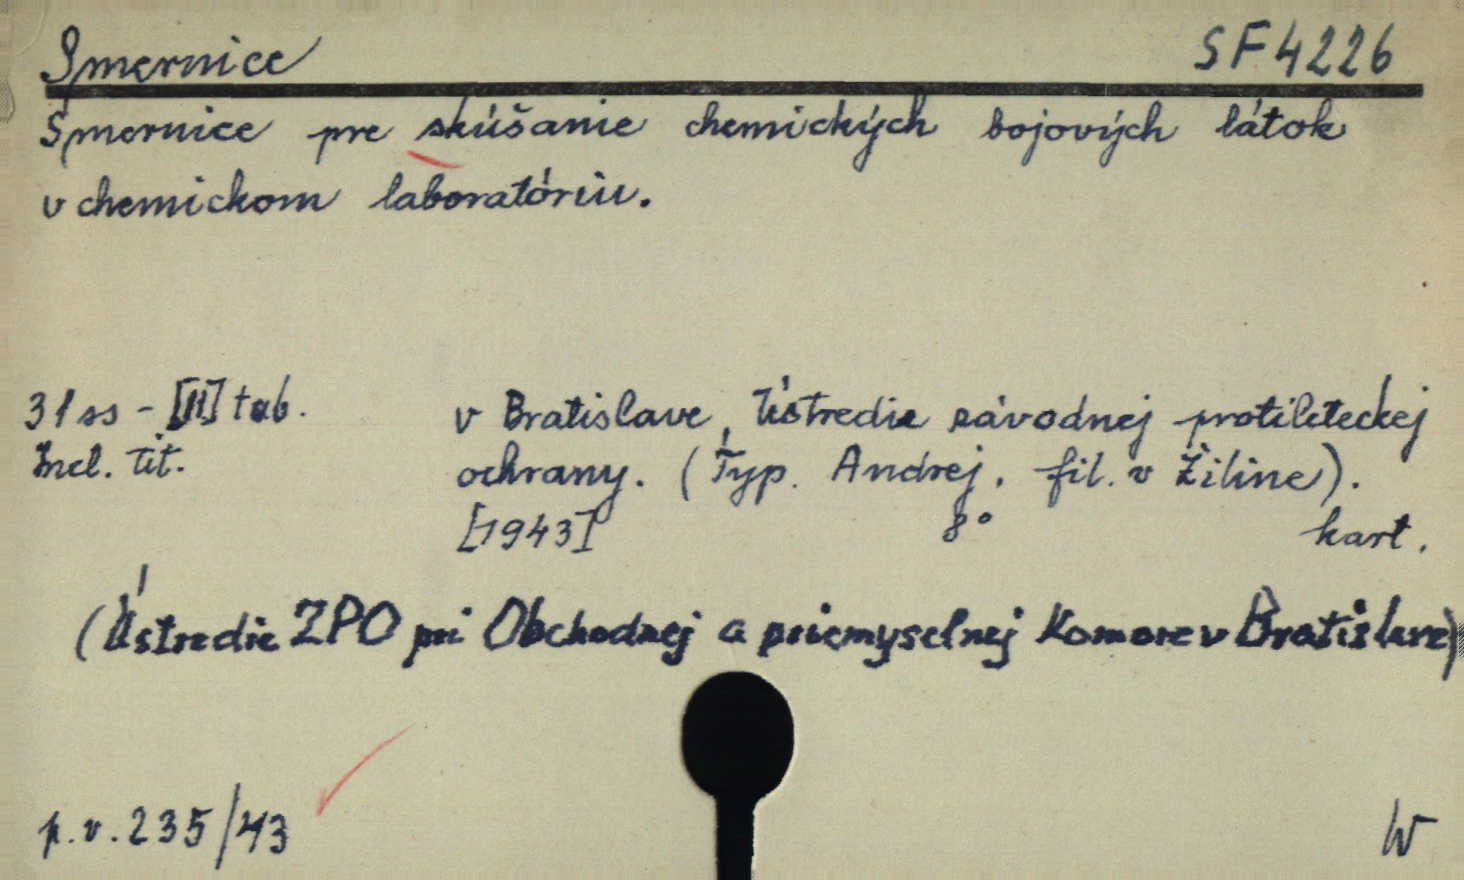 Smernice SF 4226
Smernice pre skúšanie chemických bojových látok
v chemickom laboratóriu.
31 ss - [II] tab. v Bratislave, Ústredie závodnej protileteckej
Incl. tit. ochrany. (Typ. Andrej, fil. v Žiline).
[1943] 8° kart.
(Ústredie ZPO pri Obchodnej a priemyselnej Komore v Bratislave)
p.v. 235/43 W